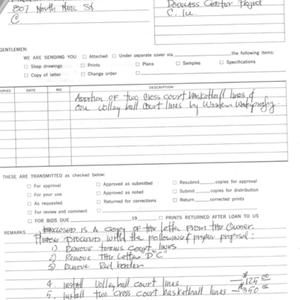 807 North
GENTLEMEN:
WE ARE SENDING YOU □ Attached □ Under separate cover via the following items:
□ Shop drawings □ Prints □ Plans □ Samples □ Specifications
□ Copy of letter □ Change order □
COPIES DATE NO. DESCRIPTION
Addition of two cross court basketball lines &
one volley ball court lines by Western
THESE ARE TRANSMITTED as checked below:
□ For approval □ Approved as submitted □ Resubmit copies for approval
□ For your use □ Approved as noted □ Submit copies for distribution
□ As requested □ Returned for corrections □ Return corrected prints
□ For review and comment □
□ FOR BIDS DUE 19 □ PRINTS RETURNED AFTER LOAN TO US
REMARKS Enclosed is a copy of the letter from the owner.
Please proceed with the following & proper proposal:
1) Remove tennis court lines
2) Remove the letter "D.C."
3) Remove Red border
4 install Volley ball court lines $125 00
5. install two cross court basketball lines - $350 00